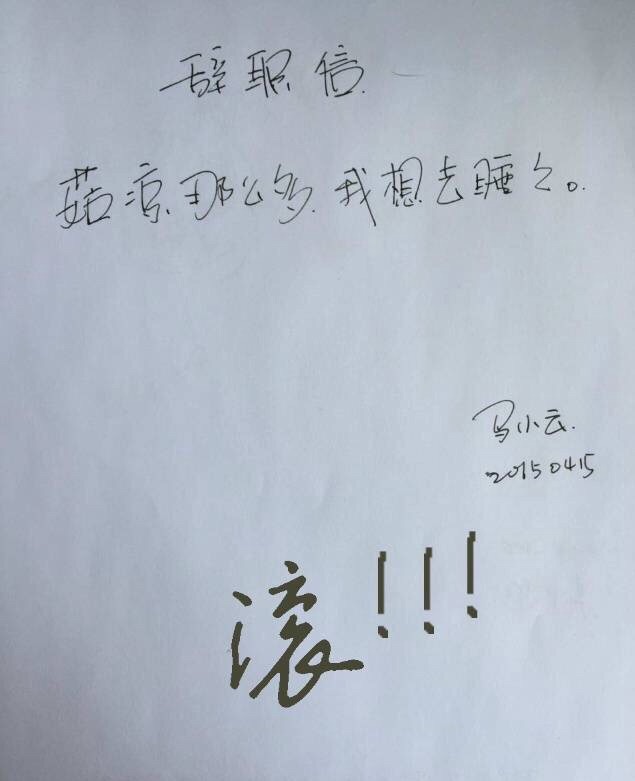 辞职信
菇凉那么多,我想去睡么。
马小云.
20150415
滚!!!